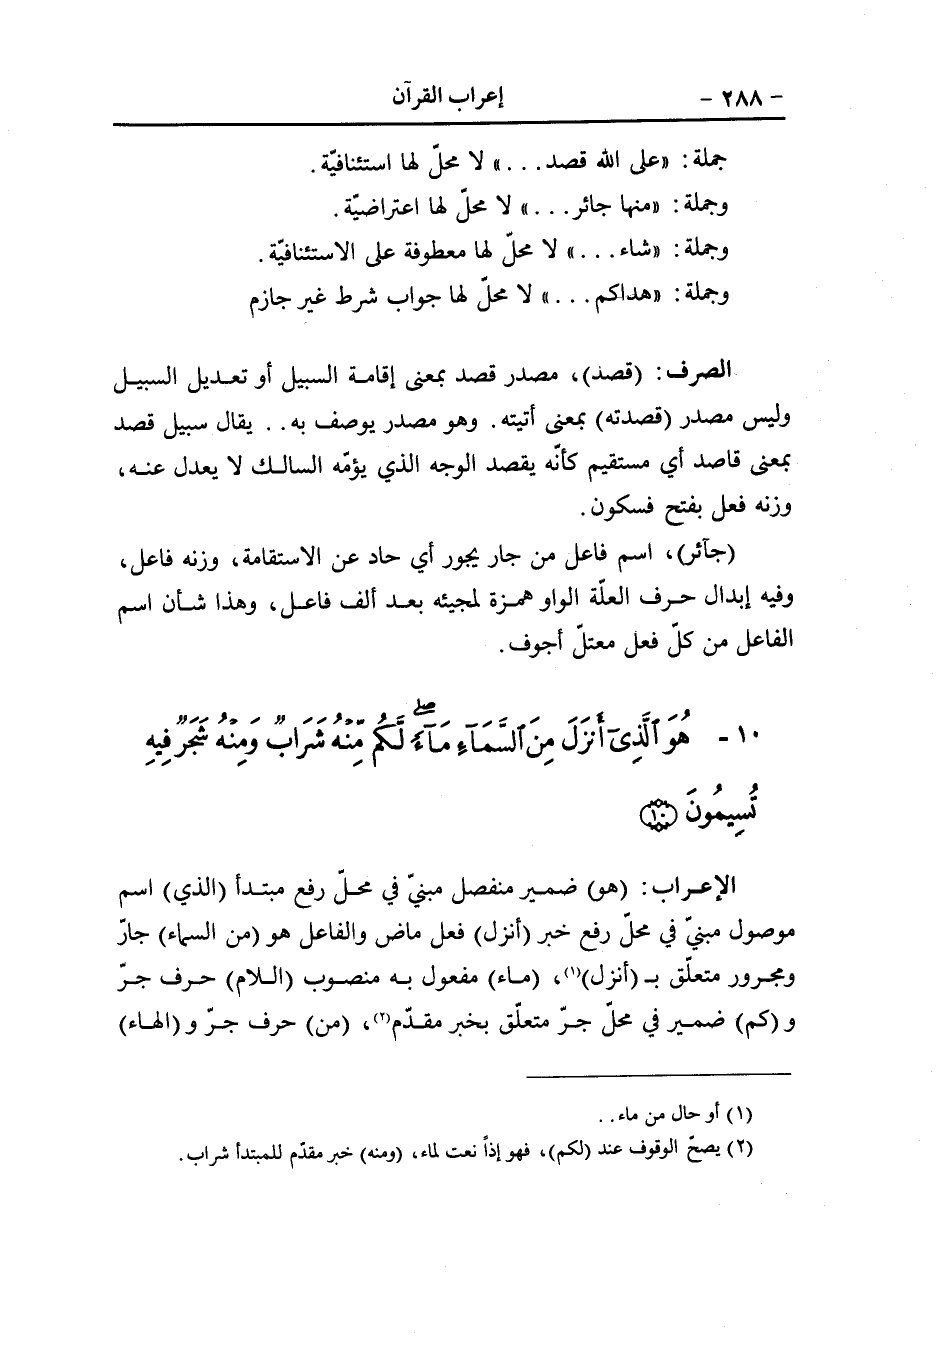 - ٢٨٨ - إعراب القرآن
جملة: «على الله قصد...» لا محلّ لها استئنافيّة.
وجملة: «منها جائر...» لا محلّ لها اعتراضيّة.
وجملة: «شاء...» لا محلّ لها معطوفة على الاستئنافيّة.
وجملة: «هداكم...» لا محلّ لها جواب شرط غير جازم
الصرف: (قصد)، مصدر قصد بمعنى إقامة السبيل أو تعديل السبيل
وليس مصدر (قصدته) بمعنى أتيته. وهو مصدر يوصف به.. يقال سبيل قصد
بمعنى قاصد أي مستقيم كأنّه يقصد الوجه الذي يؤمّه السالك لا يعدل عنه،
وزنه فعل بفتح فسكون.
(جآئر)، اسم فاعل من جار يجور أي حاد عن الاستقامة، وزنه فاعل،
وفيه إبدال حرف العلّة الواو همزة لمجيئه بعد ألف فاعل، وهذا شأن اسم
الفاعل من كلّ فعل معتلّ أجوف.
١٠ - هُوَ ٱلَّذِىٓ أَنزَلَ مِنَ ٱلسَّمَآءِ مَآءً ۖ لَّكُم مِّنْهُ شَرَابٌ وَمِنْهُ شَجَرٌ فِيهِ
تُسِيمُونَ ﴿١٠﴾
الإعراب: (هو) ضمير منفصل مبنيّ في محلّ رفع مبتدأ (الذي) اسم
موصول مبنيّ في محلّ رفع خبر (أنزل) فعل ماض والفاعل هو (من السماء) جارّ
ومجرور متعلّق بـ (أنزل)(١)، (ماء) مفعول به منصوب (اللام) حرف جرّ
و (كم) ضمير في محلّ جرّ متعلّق بخبر مقدّم(٢)، (من) حرف جرّ و (الهاء)
(١) أو حال من ماء..
(٢) يصحّ الوقوف عند (لكم)، فهو إذاً نعت لماء، (ومنه) خبر مقدّم للمبتدأ شراب.